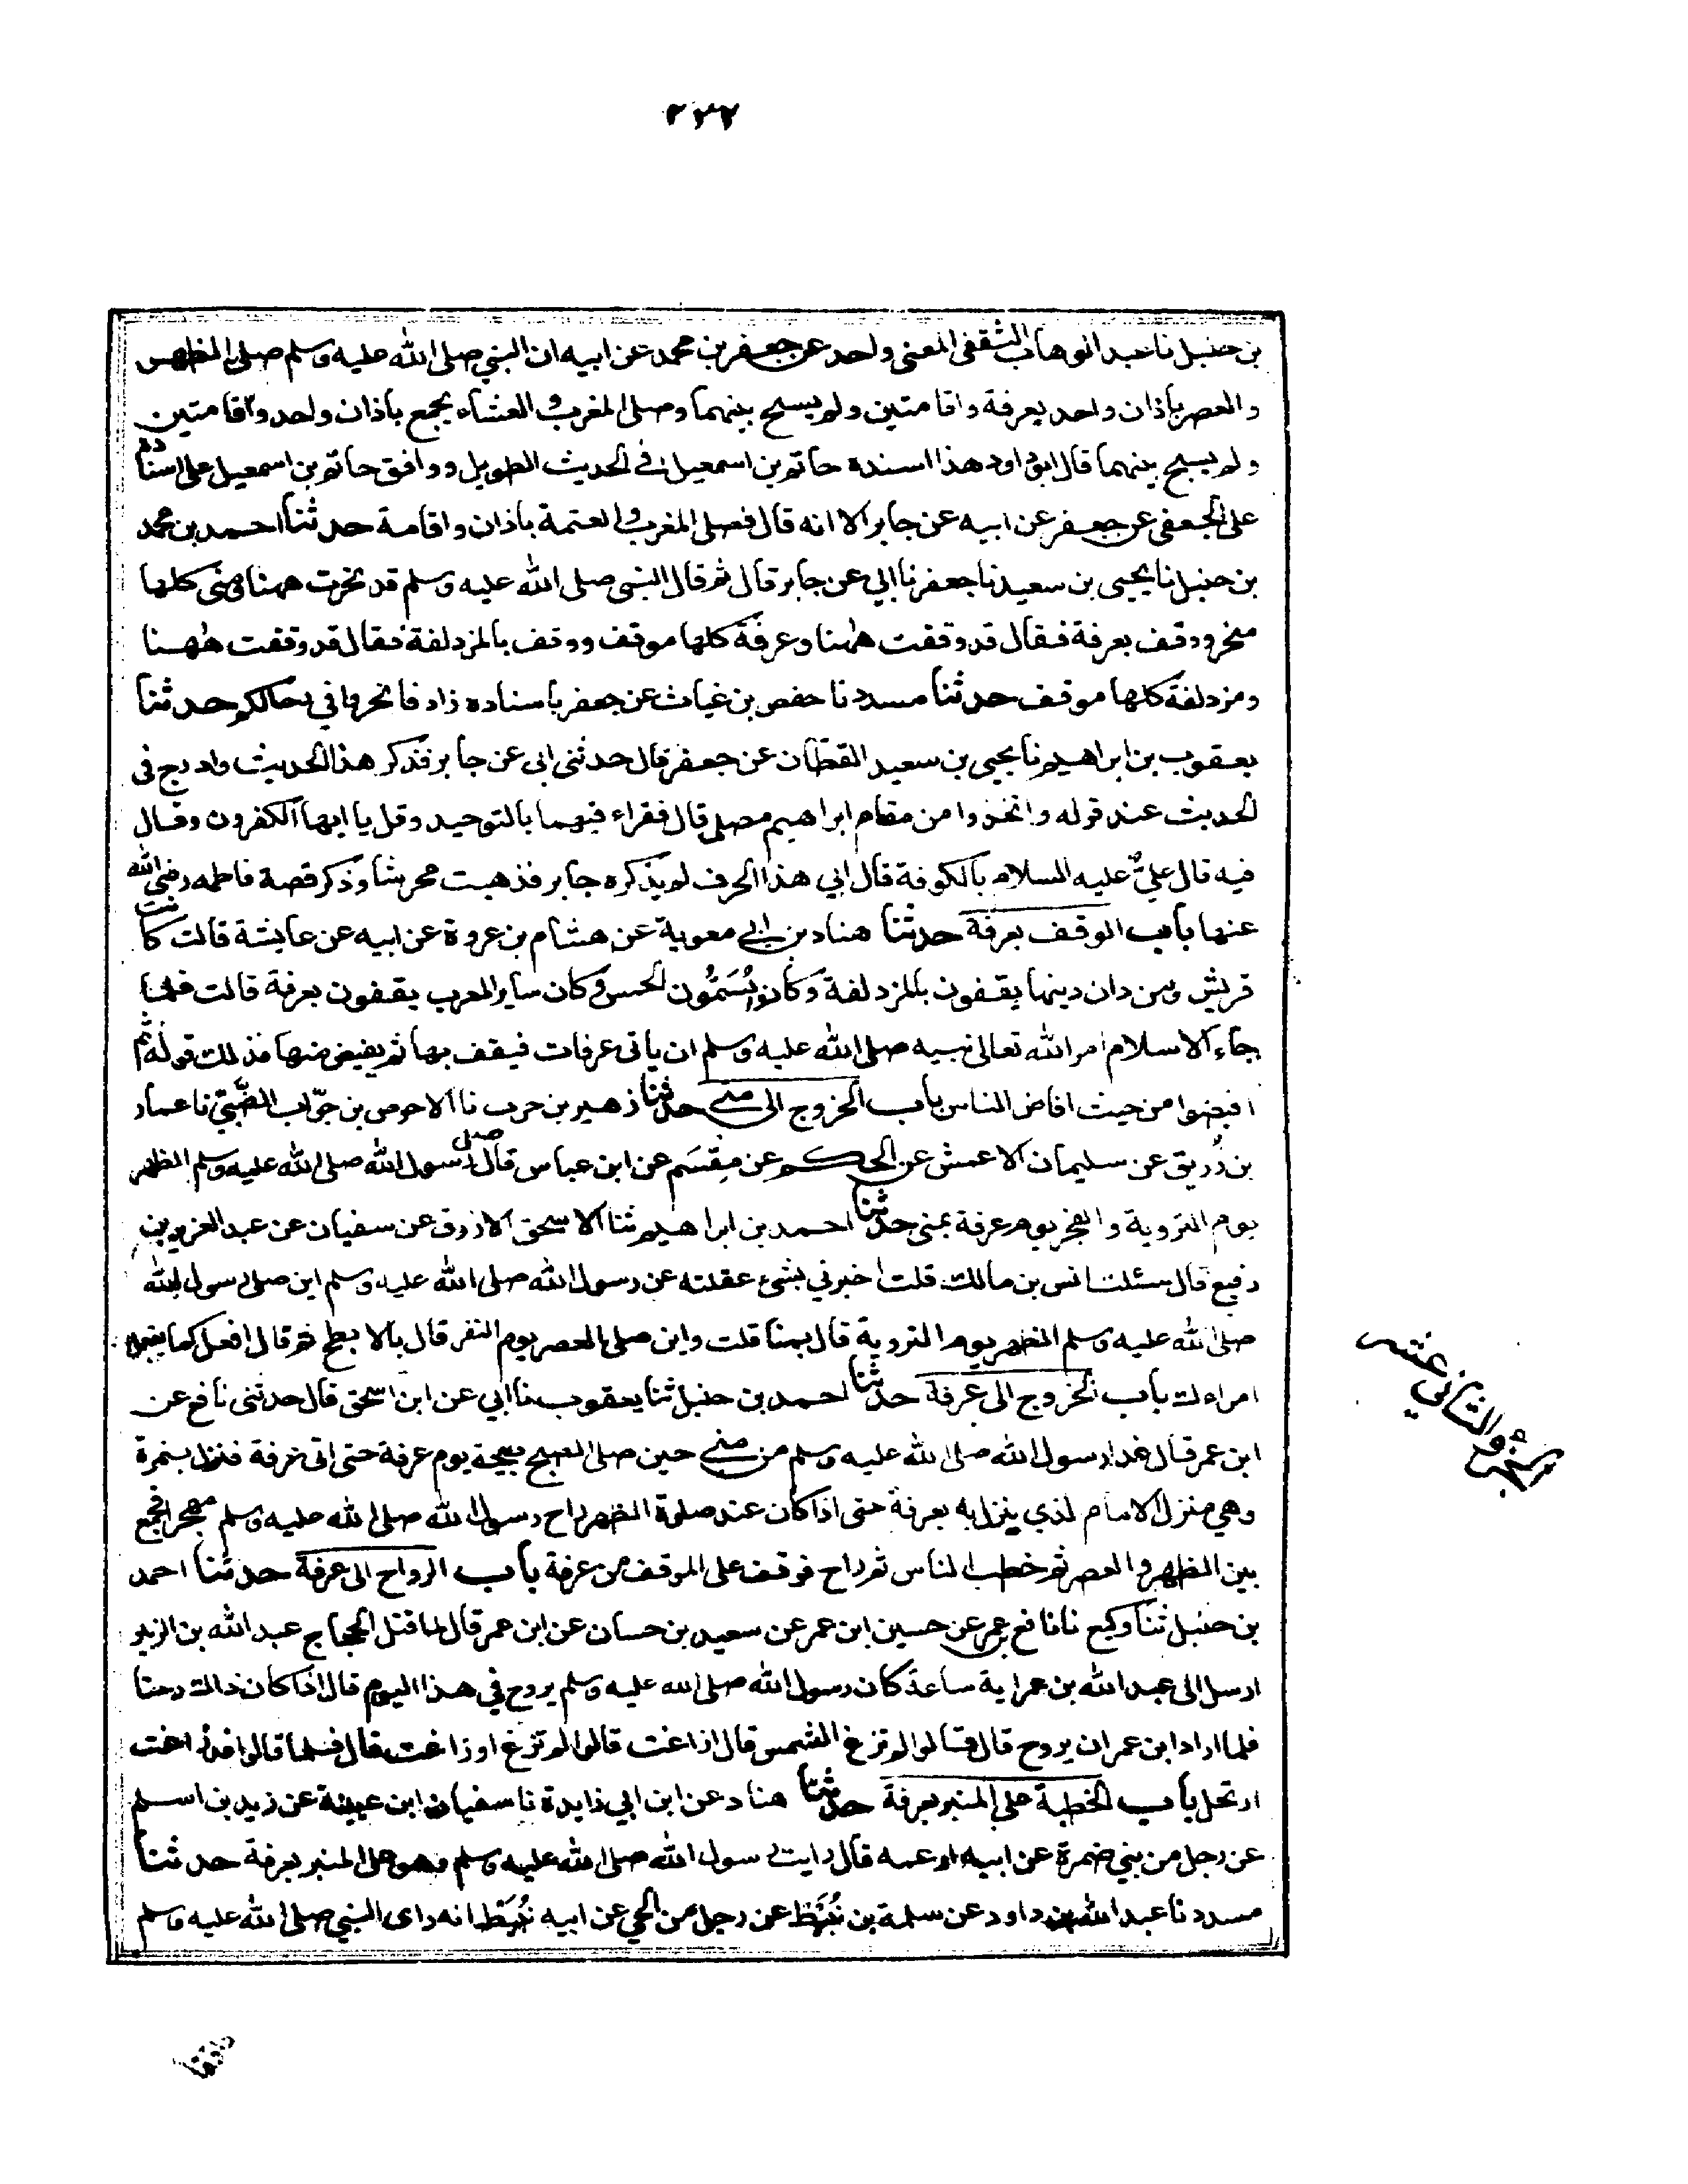 ٢٣٧
بن حنبل نا عبد الوهاب الثقفى المعنى واحد عن جعفر بن محمد عن ابيه ان النبي صلى الله عليه وسلم صلى الظهر
والعصر باذان واحد بعرفة واقامتين ولم يسبح بينهما وصلى المغرب والعشاء بجمع باذان واحد واقامتين
ولم يسبح بينهما قال ابو داود هذا اسنده حاتم بن اسمعيل فى الحديث الطويل ووافق حاتم بن اسمعيل على اسناده
على الجعفى عن جعفر عن ابيه عن جابر الا انه قال فصلى المغرب والعتمة باذان واقامة حدثنا احمد بن محمد
بن حنبل نا يحيى بن سعيد نا جعفر نا ابي عن جابر قال ثم قال النبى صلى الله عليه وسلم قد نحرت ههنا ومنى كلها
منحر ووقف بعرفة فقال قد وقفت ههنا وعرفة كلها موقف ووقف بالمزدلفة فقال قد وقفت ههنا
ومزدلفة كلها موقف حدثنا مسدد نا حفص بن غياث عن جعفر باسناده زاد فانحروا في رحالكم حدثنا
يعقوب بن ابراهيم نا يحيى بن سعيد القطان عن جعفر قال حدثنى ابى عن جابر فذكر هذا الحديث وادرج فى
الحديث عند قوله واتخذوا من مقام ابراهيم مصلى قال فقراء فيهما بالتوحيد وقل يا ايها الكفرون وقال
فيه قال علي عليه السلام بالكوفة قال ابي هذا الحرف لم يذكره جابر فذهبت محرشا وذكر قصة فاطمه رضي الله
عنها باب الوقف بعرفة حدثنا هناد بن ابي معوية عن هشام بن عروة عن ابيه عن عايشة قالت كانت
قريش ومن دان دينها يقفون بالمزدلفة وكانوا يُسَمُّون الحمس وكان ساير العرب يقفون بعرفة قالت فلما
جاء الاسلام امر الله تعالى نبيه صلى الله عليه وسلم ان ياتى عرفات فيقف بها ثم يفيض منها فذلك قوله ثم
افيضوا من حيث افاض الناس باب الخروج الى منى حدثنا زهير بن حرب نا الاحوص بن جوّاب الضّبّىّ نا عمار
بن رُزيق عن سليمان الاعمش عن الحكم عن مِقسَم عن ابن عباس قال صلى رسول الله صلى الله عليه وسلم الظهر
يوم التروية والفجر يوم عرفة بمنى حدثنا احمد بن ابراهيم ثنا الاسحق الازرق عن سفيان عن عبد العزيز بن
رفيع قال سئلت انس بن مالك قلت اخبرني بشىء عقلته عن رسول الله صلى الله عليه وسلم اين صلى رسول الله
صلى الله عليه وسلم الظهر يوم التروية قال بمنا قلت واين صلى العصر يوم النفر قال بالابطح ثم قال افعل كما يفعل
امراءك باب الخروج الى عرفة حدثنا احمد بن حنبل ثنا يعقوب نا ابي عن ابن اسحق قال حدثنى نافع عن
ابن عمر قال غدا رسول الله صلى الله عليه وسلم من منى حين صلى الصبح صبيحة يوم عرفة حتى اتى عرفة فنزل بنمرة
وهي منزل الامام الذي ينزل به بعرفة حتى اذا كان عند صلوة الظهر راح رسول الله صلى الله عليه وسلم مهجرا فجمع
بين الظهر والعصر ثم خطب الناس ثم راح فوقف على الموقف من عرفة باب الرواح الى عرفة حدثنا احمد
بن حنبل ثنا وكيع نا نافع بن عمر عن حسين ابن عمر عن سعيد بن حسان عن ابن عمر قال لما قتل الحجاج عبد الله بن الزبير
ارسل الى عبد الله بن عمر اية ساعة كان رسول الله صلى الله عليه وسلم يروح في هذا اليوم قال اذا كان ذالك رحنا
فلما اراد ابن عمر ان يروح قال قالوا لم تزغ الشمس قال ازاغت قالوا لم تزغ او زاغت قال فلما قالوا قد زاغت
ارتحل باب الخطبة على المنبر بعرفة حدثنا هناد عن ابن ابي زايدة نا سفيان ابن عيينة عن زيد بن اسلم
عن رجل من بني ضمرة عن ابيه او عمه قال رايت رسول الله صلى الله عليه وسلم وهو على المنبر بعرفة حدثنا
مسدد نا عبد الله بن داود عن سلمة بن نُبَيْط عن رجل من الحي عن ابيه نُبَيْط انه راى النبي صلى الله عليه وسلم
الجزؤ الثاني عشر